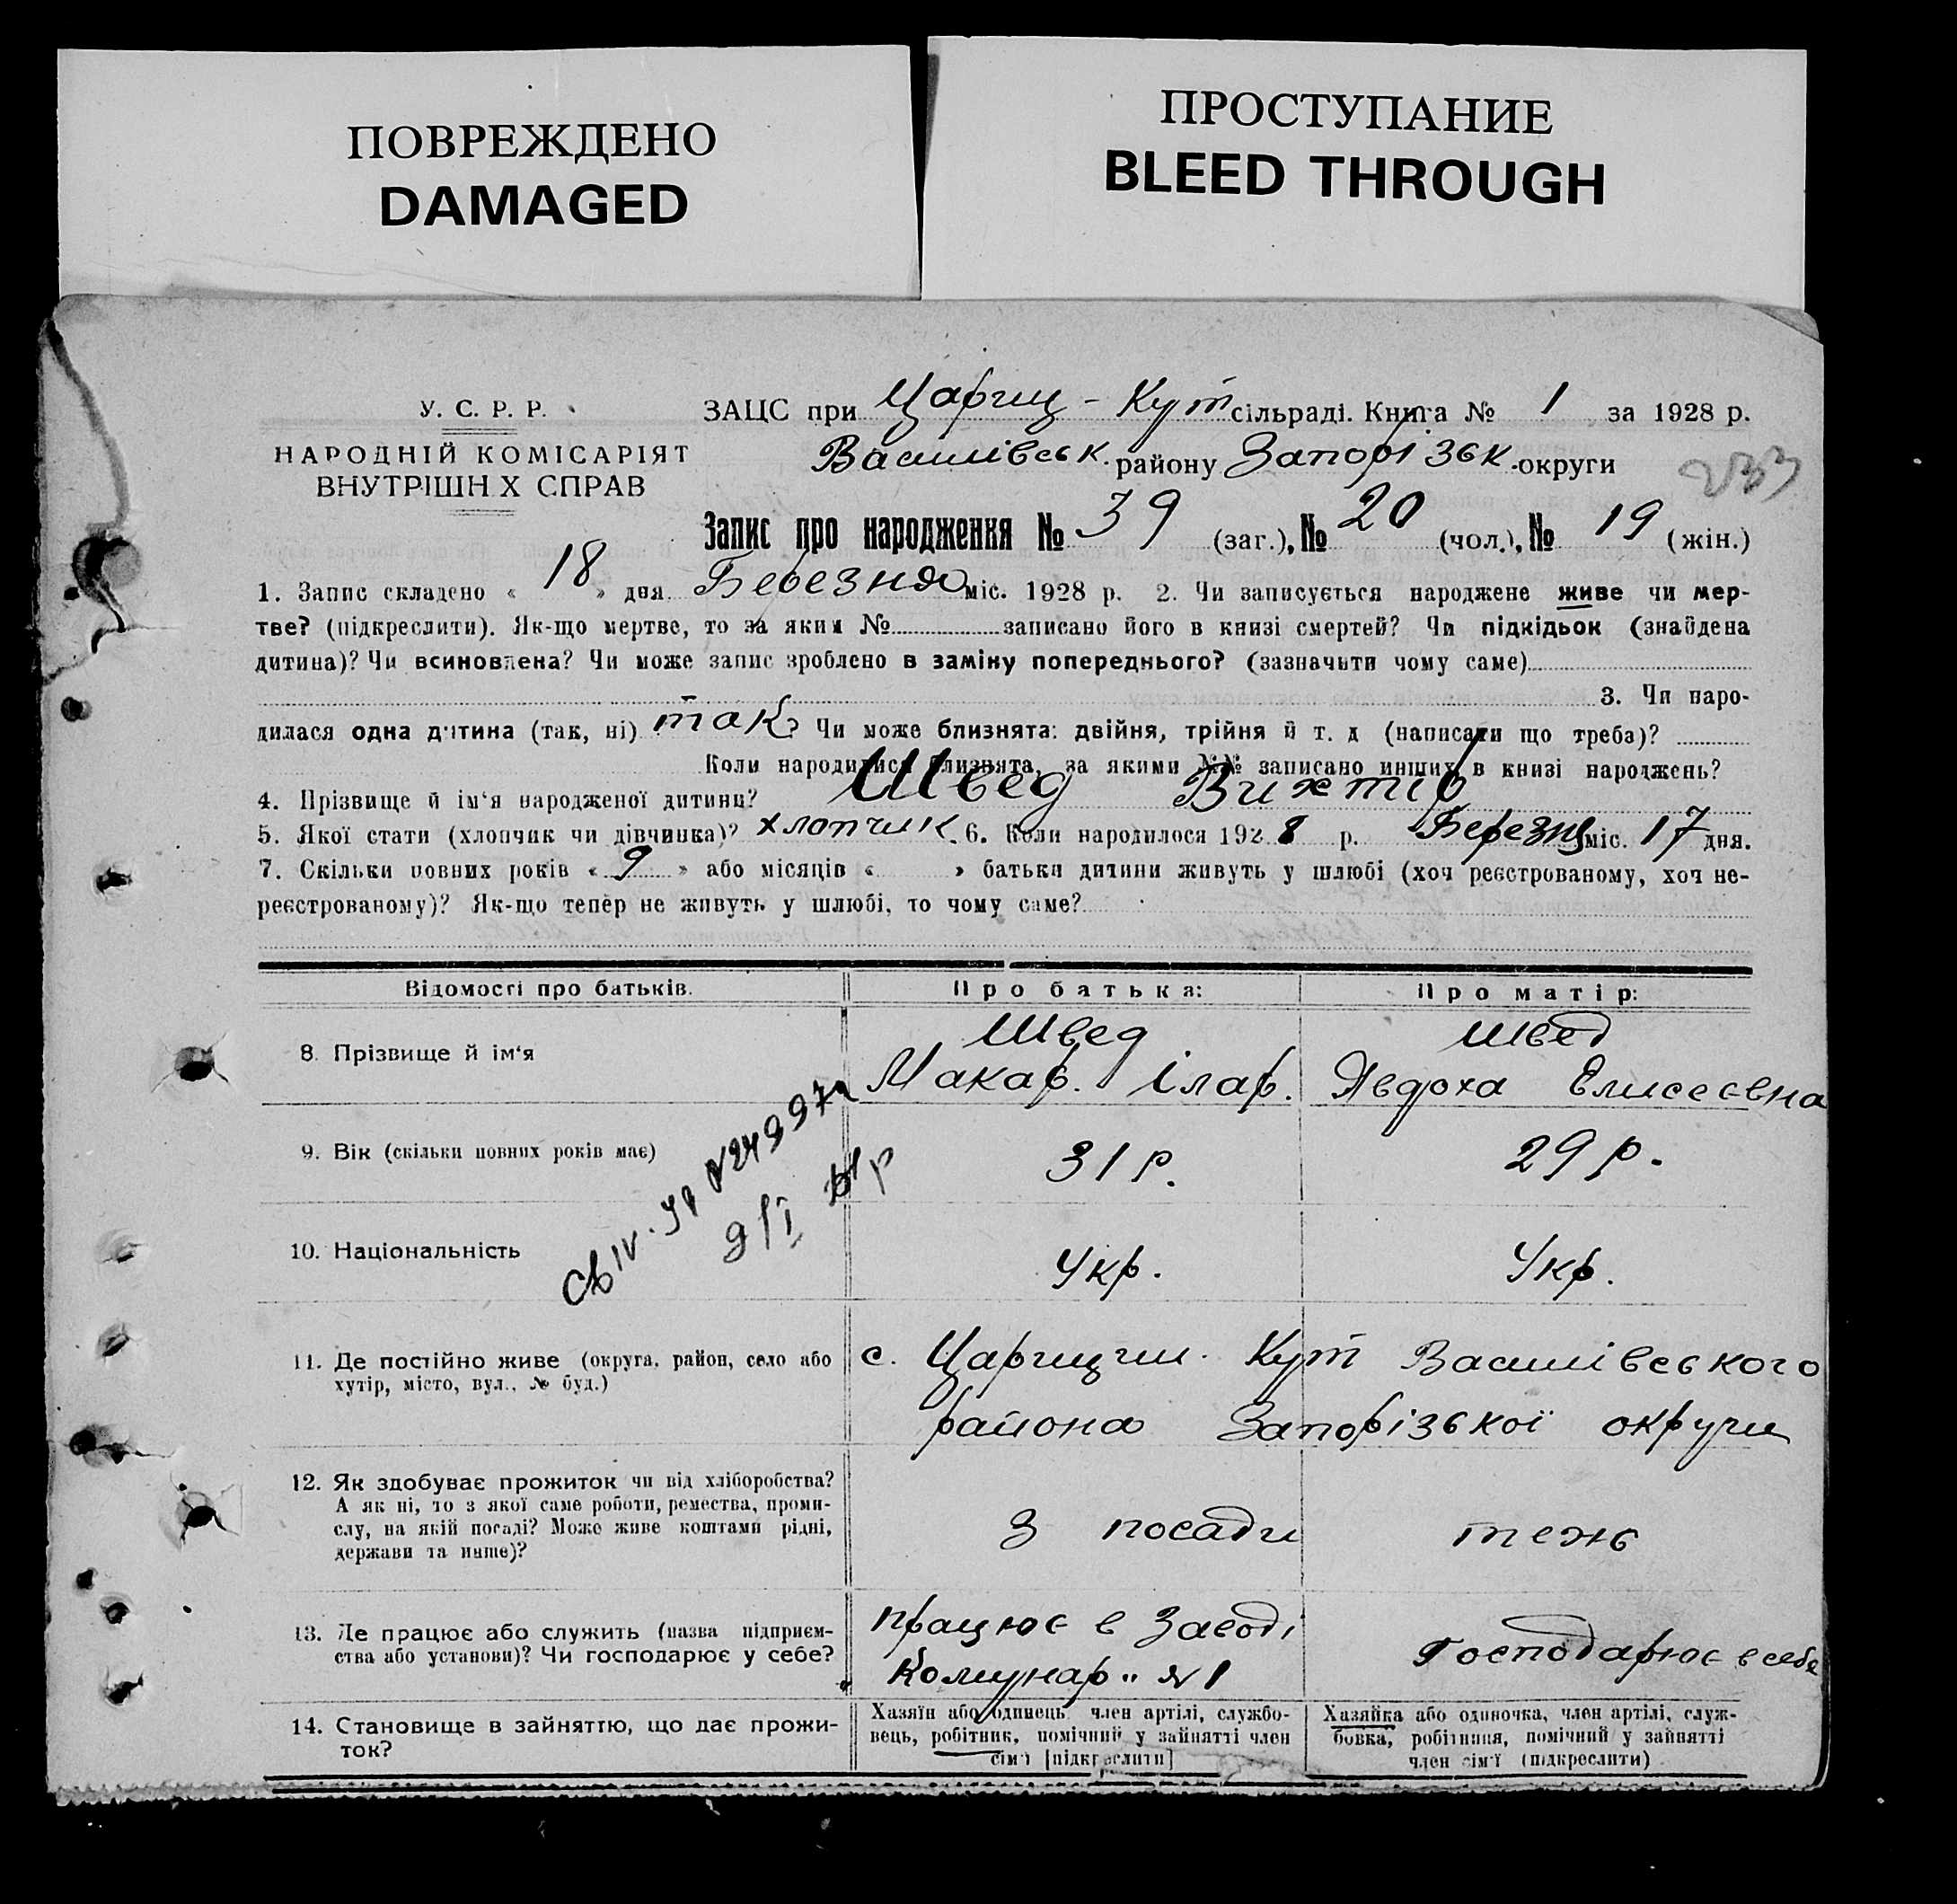 ПОВРЕЖДЕНО
DAMAGED
ПРОСТУПАНИЕ
BLEED THROUGH
У. С. Р. Р.
НАРОДНІЙ КОМІСАРІЯТ
ВНУТРІШН Х СПРАВ
ЗАЦС при Цариц - Кут сільраді. Книга № 1 за 1928 р.
Василівськ. району Запорізьк. округи
233
Запис про народження № 39 (заг.), № 20 (чол.), № 19 (жін.)
1. Запис складено « 18 » дня Березня міс. 1928 р. 2. Чи записується народжене живе чи мер-
тве? (підкреслити). Як-що мертве, то за яким № записано його в книзі смертей? Чи підкідьок (знайдена
дитина)? Чи всиновлена? Чи може запис зроблено в заміну попереднього? (зазначити чому саме)
3. Чи наро-
дилася одна дитина (так, ні) так Чи може близнята: двійня, трійня й т. д (написати що треба)?
Коли народилися близнята, за якими №№ записано инших в книзі народжень?
4. Прізвище й ім'я народженої дитини? Швед Вихтір
5. Якої стати (хлопчик чи дівчинка)? хлопчик. 6. Коли народилося 1928 р. Березня міс. 17 дня.
7. Скільки повних років « 9 » або місяців « » батьки дитини живуть у шлюбі (хоч реєстрованому, хоч не-
реєстрованому)? Як-що тепер не живуть у шлюбі, то чому саме?
Відомості про батьків. Про батька: Про матір:
8. Прізвище й ім'я Швед Макар. Ілар. Швед Явдоха Елисеєвна
9. Вік (скільки повних років має) 31 р. 29 р.
10. Національність Укр. Укр.
11. Де постійно живе (округа, район, село або
хутір, місто, вул., № буд.)
с. Царицин. Кут Василівського
района Запорізької округи
12. Як здобуває прожиток чи від хліборобства?
А як ні, то з якої саме роботи, ремества, проми-
слу, на якій посаді? Може живе коштами рідні,
держави та инше)?
З посади тежь
13. Де працює або служить (назва підприєм-
ства або установи)? Чи господарює у себе?
працює в Заводі
Комунар" №1
Господарює в себе
14. Становище в зайняттю, що дає прожи-
ток?
Хазяїн або одинець член артілі, службо-
вець, робітник, помічний у зайнятті член
сім'ї [підкреслити]
Хазяйка або одиночка, член артілі, служ-
бовка, робітниця, помічний у зайнятті
член сім'ї (підкреслити)